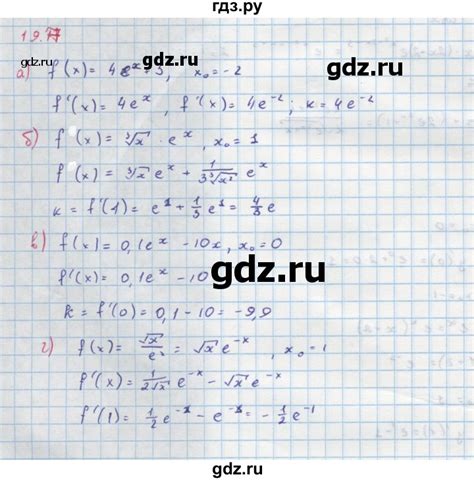 гдз.ру
19.17
gdz.ru gdz.ru
а) f(x) = 4eˣ + 3, x₀ = -2
f'(x) = 4eˣ, f'(x) = 4e⁻²; к = 4e⁻²
б) f(x) = ∛x · eˣ, x₀ = 1
f'(x) = ∛x eˣ + 1/(3∛x²) eˣ
к = f'(1) = e¹ + 1/3 e¹ = 4/3 e
в) f(x) = 0,1eˣ - 10x, x₀ = 0
gdz.ru
f'(x) = 0,1eˣ - 10
k = f'(0) = 0,1 - 10 = -9,9
г) f(x) = √x/eˣ = √x e⁻ˣ, x₀ = 1
f'(x) = 1/(2√x) e⁻ˣ - √x e⁻ˣ
f'(1) = 1/2 e⁻ˣ - e⁻ˣ = -1/2 e⁻¹
gdz.ru gdz.ru